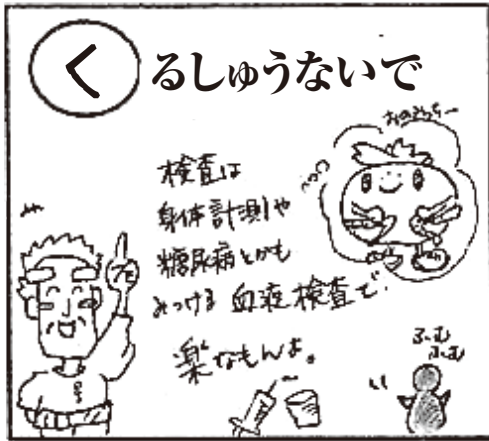 くるしゅうないで
検査は
身体計測や
糖尿病とかも
みつける 血液検査で、
楽なもんよ。
ふーむ
ふーむ